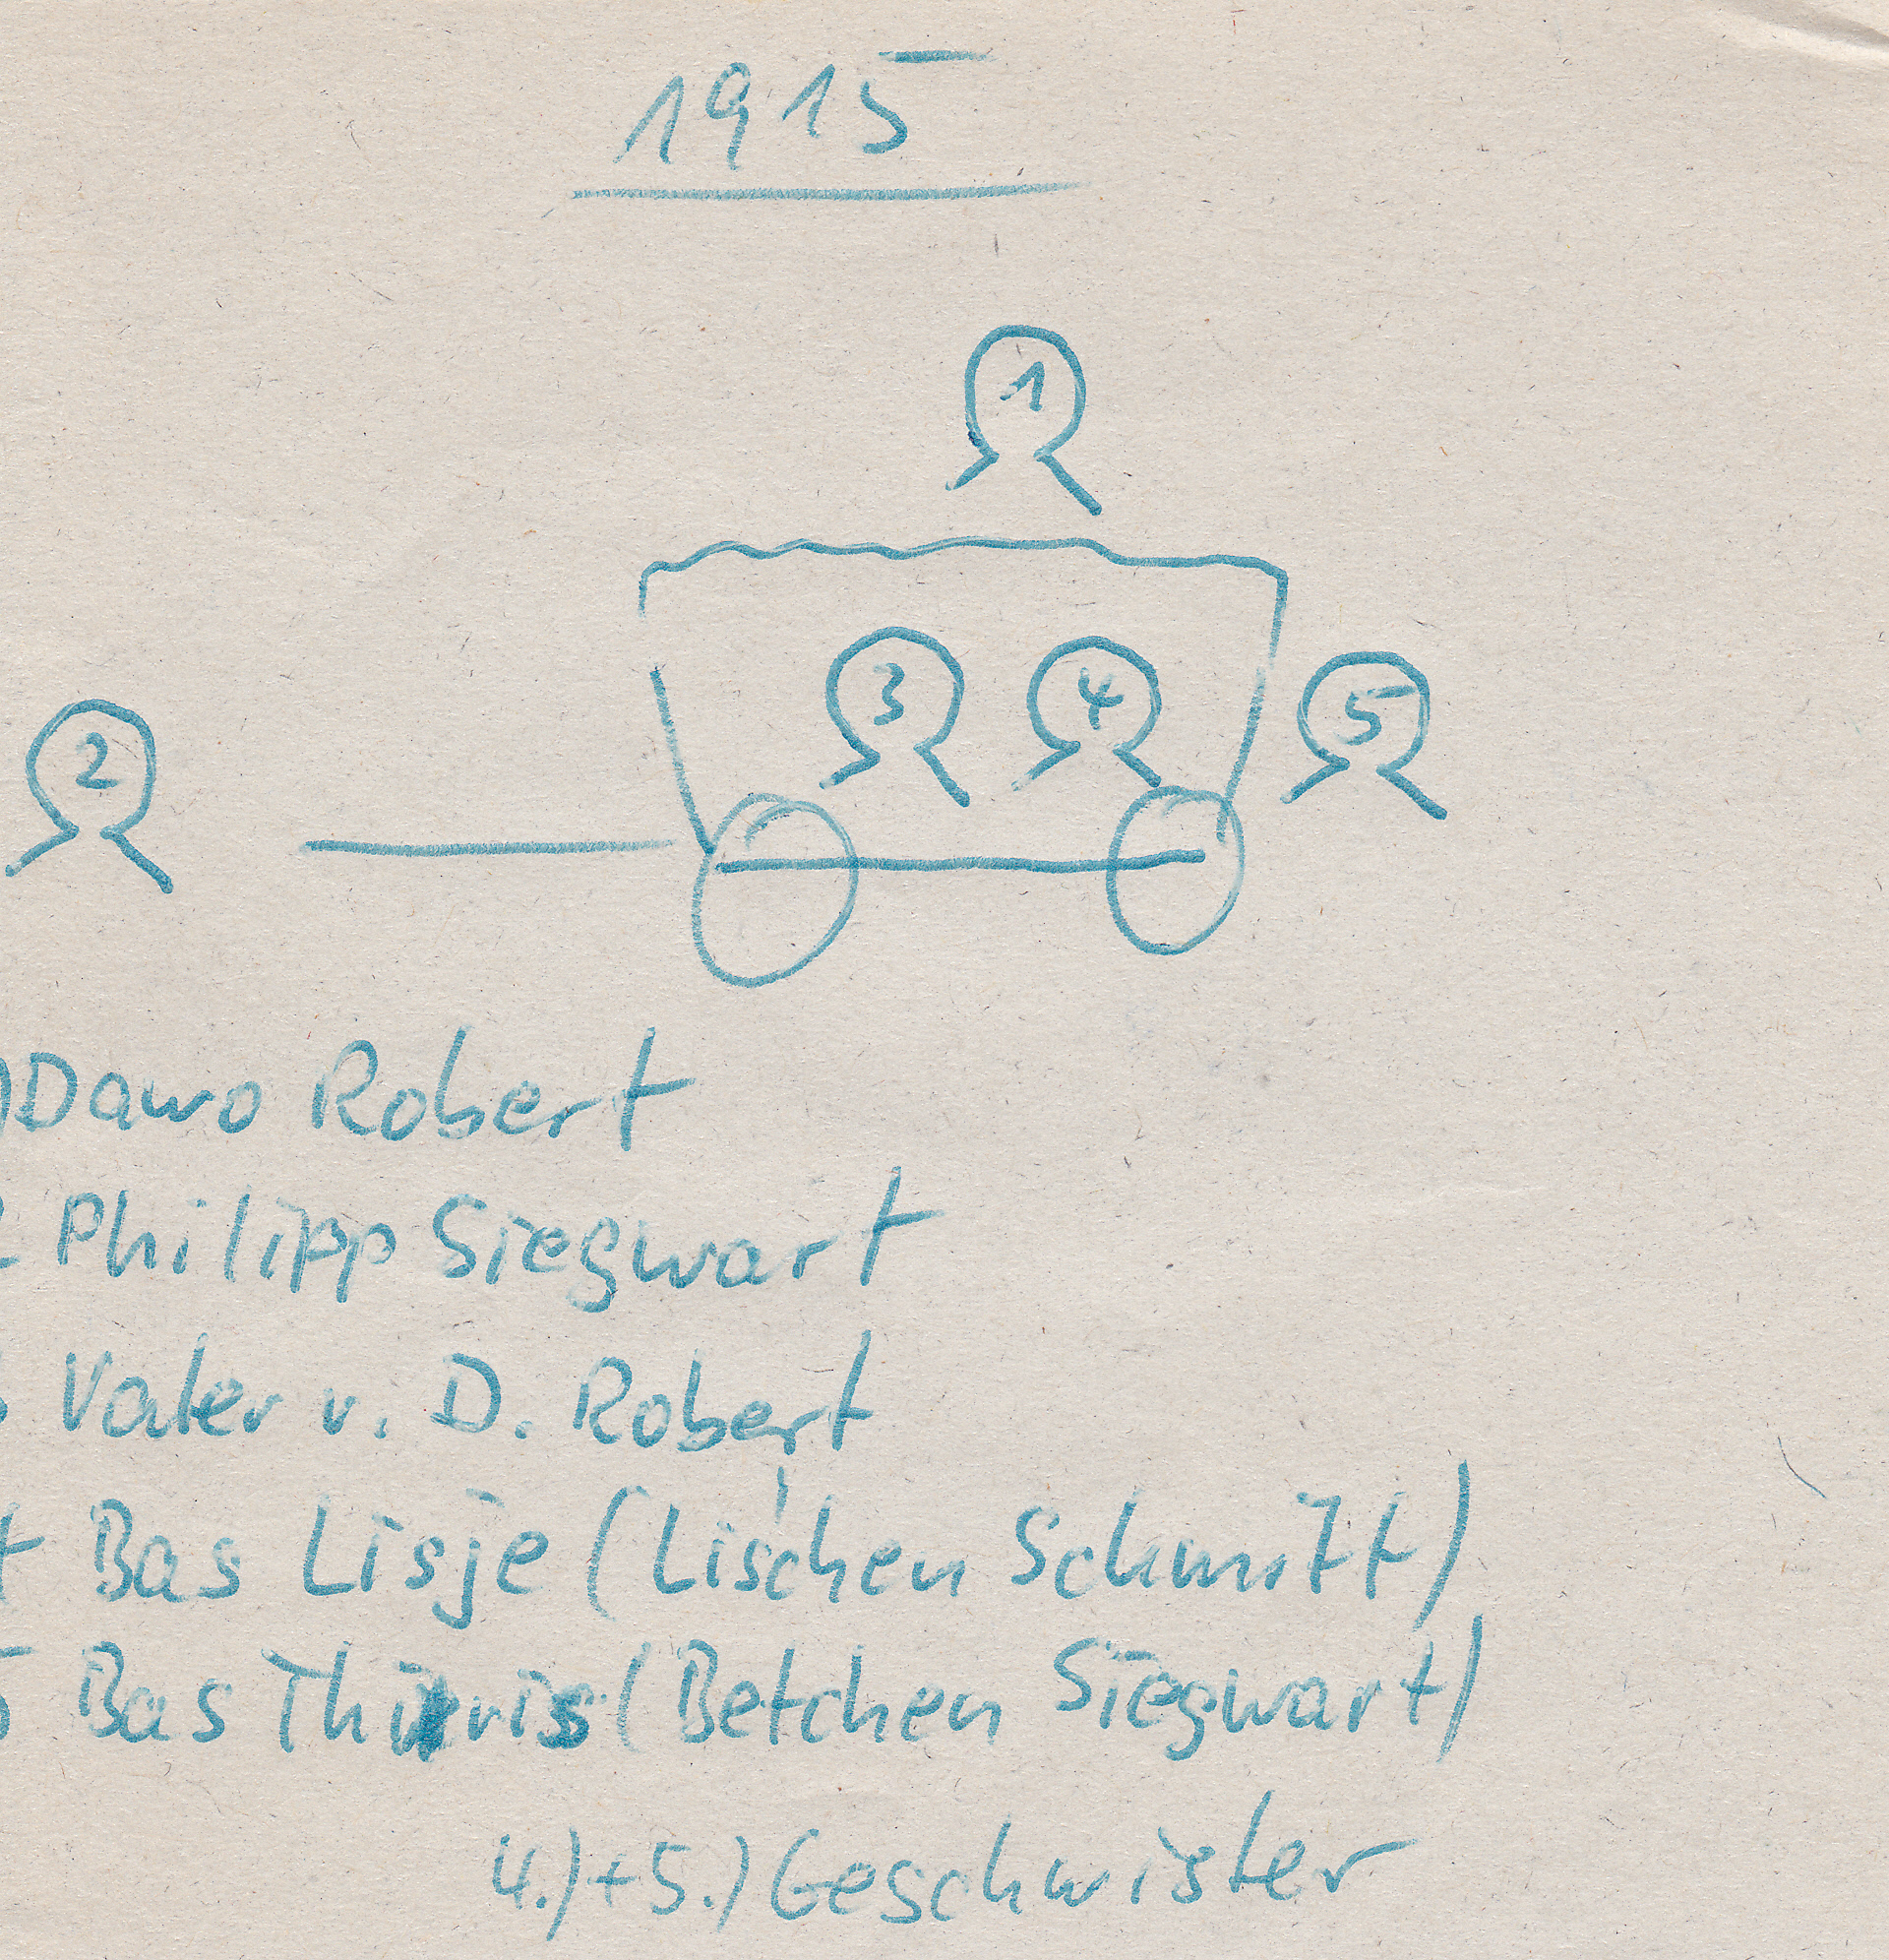 1915
1
3 4 5
2
) Dawo Robert
2 Philipp Siegwart
3 Vater v. D. Robert
4 Bas Lisje (Lis'chen Schmitt)
5 Bas (Betchen Siegwart)
4.)+5.) Geschwister